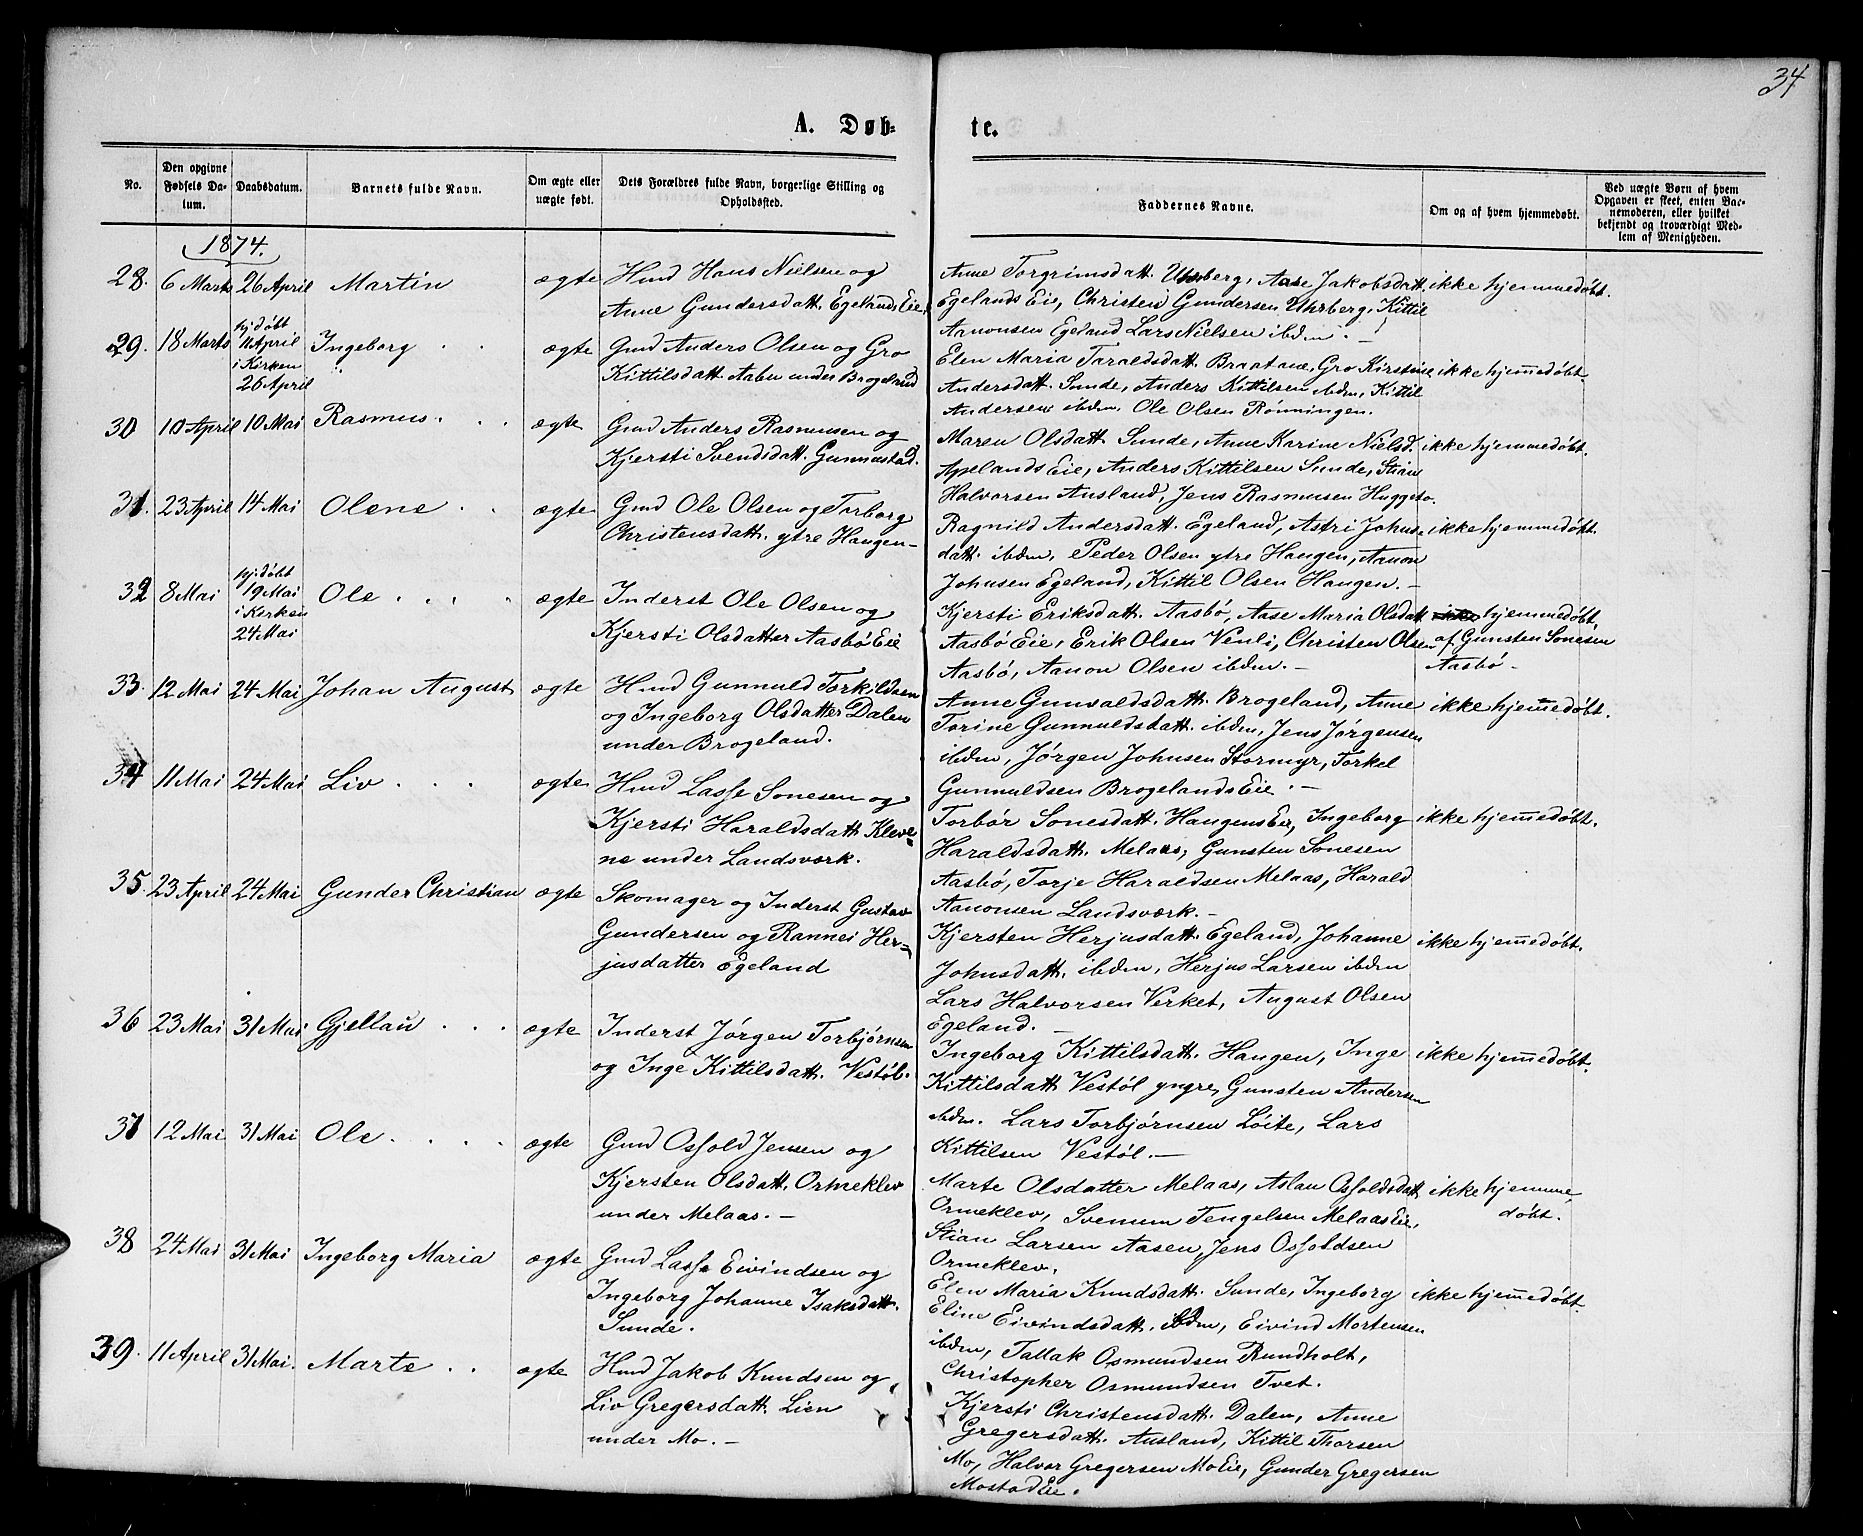 34
A. Døb-
te.
No.
Den opgivne Fødsels Da-tum.
Daabsdatum.
Barnets fulde Navn.
Om ægte eller uægte født.
Dets Forældres fulde Navn, borgerlige Stilling og Opholdssted.
Faddernes Navne.
Om og af hvem hjemmedøbt.
Ved uægte Børn af hvem Opgaven er skeet, enten Bar-nemoderen, eller hvilket bekjendt og troværdigt Med-lem af Menigheden.
1874.
28. 6 Marts 26 April Martin ægte Hmd Hans Nielsen og
Anne Gundersdatt. Egelands Eie
Anne Torgrimsdatt. Uhrberg, Aase Jakobsdatt. ikke hjemmedøbt.
Egelands Eie, Christen Gundersen Uhrberg, Kittil
Aanonsen Egeland Lars Nielsen ibdm. –
29. 18 Marts hjdøbt 11 April i Kirken 26 April Ingeborg ægte Gmd Anders Olsen og Gro
Kittilsdatt. Aabu under Brogeland
Elen Maria Taraldsdatt. Braatane, Gro Kirstine ikke hjemedøbt.
Andersdatt. Sunde, Anders Kittilsen ibdm, Kittil
Andersen ibdm. Ole Olsen Rønningen.
30 10 April 10 Mai Rasmus ægte Gmd Anders Rasmusen og
Kjersti Svendsdatt. Gunnestad.
Maren Olsdatt. Sunde, Anne Karine Nielsd. ikke hjemmedøbt.
Apelands Eie, Anders Kittilsen Sunde, Stian
Halvorsen Ausland, Jens Rasmusen Huggeto.
31. 23 April 14 Mai Olene ægte Gmd Ole Olsen og Torborg
Christensdatt. ytre Haugen –
Ragnild Andersdatt. Egeland, Astri Johns- ikke hjemmedøbt.
datt. ibdm, Peder Olsen ytre Haugen, Aanon
Johnsen Egeland, Kittil Olsen Haugen. –
32 8 Mai hjdøbt 19 Mai i Kirken 24 Mai Ole ægte Inderst Ole Olsen og
Kjersti Olsdatter Aasbø Eie
Kjersti Eriksdatt. Aasbø, Aase Maria Olsdatt. ikke hjemmedøbt,
Aasbø Eie, Erik Olsen Venli, Christen Olsen af Gunsten Sonesen
Aasbø, Aanon Olsen ibdm. – Aasbø –
33. 12 Mai 24 Mai Johan August ægte Hmd Gunnuld Torkildsen
og Ingeborg Olsdatter Dalen
under Brogeland.
Anne Gunvaldsdatt. Brogeland, Anne ikke hjemedøbt.
Torine Gunnuldsdatt. ibdm, Jens Jørgensen
ibdm, Jørgen Johnsen Stormyr, Torkel
Gunnuldsen Brogelands Eie. –
34 11 Mai 24 Mai Liv ægte Hmd Lasse Sonesen og
Kjersti Haraldsdatt. Kleve-
ne under Landsværk.
Torbør Sonesdatt. Haugens Eie, Ingeborg ikke hjemmedøbt.
Haraldsdatt. Melaas, Gunsten Sonesen
Aasbø, Torje Haraldsen Melaas, Harald
Aanonsen Landsværk. –
35. 23 April 24 Mai Gunder Christian ægte Skomager og Inderst Gustav
Gundersen og Rannei Her-
jusdatter Egeland
Kjersten Herjusdatt. Egeland, Johanne ikke hjemedøbt.
Johnsdatt. ibdm, Herjus Larsen ibdm
Lars Halvorsen Verket, August Olsen
Egeland. –
36 23 Mai 31 Mai Gjellau ægte Inderst Jørgen Torbjørnsen
og Inge Kittilsdatt. Vestøl.
Ingeborg Kittilsdatt. Haugen, Inge ikke hjemedøbt.
Kittilsdatt. Vestøl yngre, Gunsten Andersen
ibdm. Lars Torbjørnsen Løite, Lars
Kittilsen Vestøl. –
37 12 Mai 31 Mai Ole ægte Gmd Osfold Jensen og
Kjersten Olsdatt. Ormeklev
under Melaas. –
Marte Olsdatter Melaas, Aslau Osfoldsdatt. ikke hjemme,
Ormeklev, Svenum Tengelsen Melaas Eie, døbt.
Stian Larsen Aasen, Jens Osfoldsen
Ormeklev.
38 24 Mai 31 Mai Ingeborg Maria ægte Gmd Lasse Eivindsen og
Ingeborg Johanne Isaksdatt.
Sunde.
Elen Maria Knudsdatt. Sunde, Ingeborg ikke hjemedøbt.
Eline Eivindsdatt. ibdm, Eivind Mortensen
ibdm, Tallak Osmundsen Rundholt,
Christopher Osmundsen Tvet.
39. 11 April 31 Mai. Marte ægte Hmd Jakob Knudsen og
Liv Gregersdatt. Lien
under Mo. –
Kjersti Christensdatt. Dalen, Anne
Gregersdatt. Ausland, Kittil Thorsen
Mo, Halvor Gregersen Mo Eie, Gunder Gregersen
Mostad Eie.